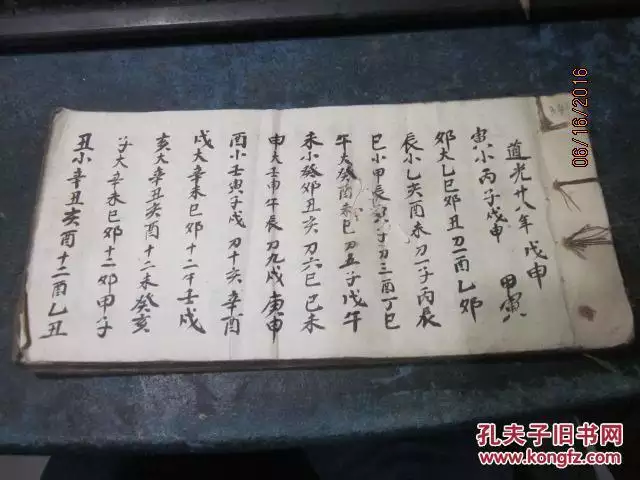 道光廿八年戊申
寅小丙子戌申 甲寅
卯大乙巳卯丑刀一酉乙卯
辰小乙亥酉未刀一子丙辰
巳小甲辰寅子刀三酉丁巳
午大癸酉未巳刀五子戊午
未小癸卯丑亥刀六巳己未
申大壬申午辰刀九戌庚申
酉小壬寅子戌刀十亥辛酉
戌大辛未巳卯十二壬戌
亥大辛丑亥酉十二未癸亥
子大辛未巳卯十二卯甲子
丑小辛丑亥酉十二酉乙丑
06/16/2016
孔夫子旧书网
www.kongfz.com